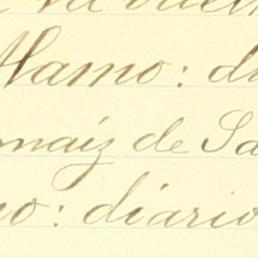 Alamo: di
maiz de Sa
no: diario